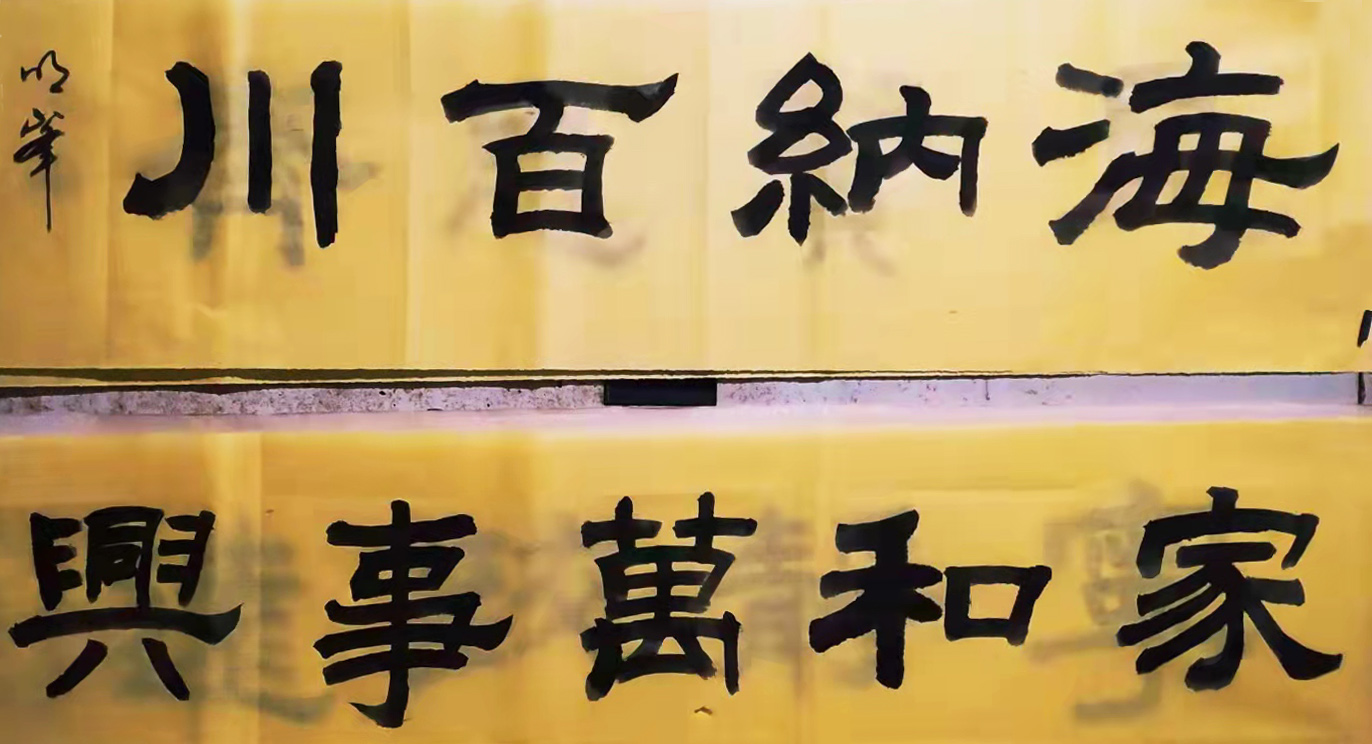 海納百川
明峯
家和萬事興